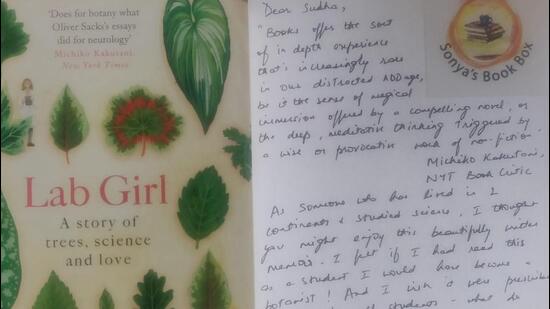 'Does for botany what
Oliver Sacks's essays
did for neurology'
Michiko Kakutani,
New York Times
Lab Girl
A story of
trees, science
and love
Dear Sudha,
"Books offer the sort
of in depth experience
that's increasingly rare
in our distracted ADD age,
be it the sense of magical
immersion offered by a compelling novel, or
the deep, meditative thinking triggered by
a wise or provocative work of non-fiction".
Michiko Kakutani,
NYT Book Critic
As someone who has lived in 2
continents & studied science, I thought
you might enjoy this beautifully written
memoir. I felt if I had read this
as a student I would have become a
botanist! And I wish it were prescribed
students - what do
Sonya's Book Box